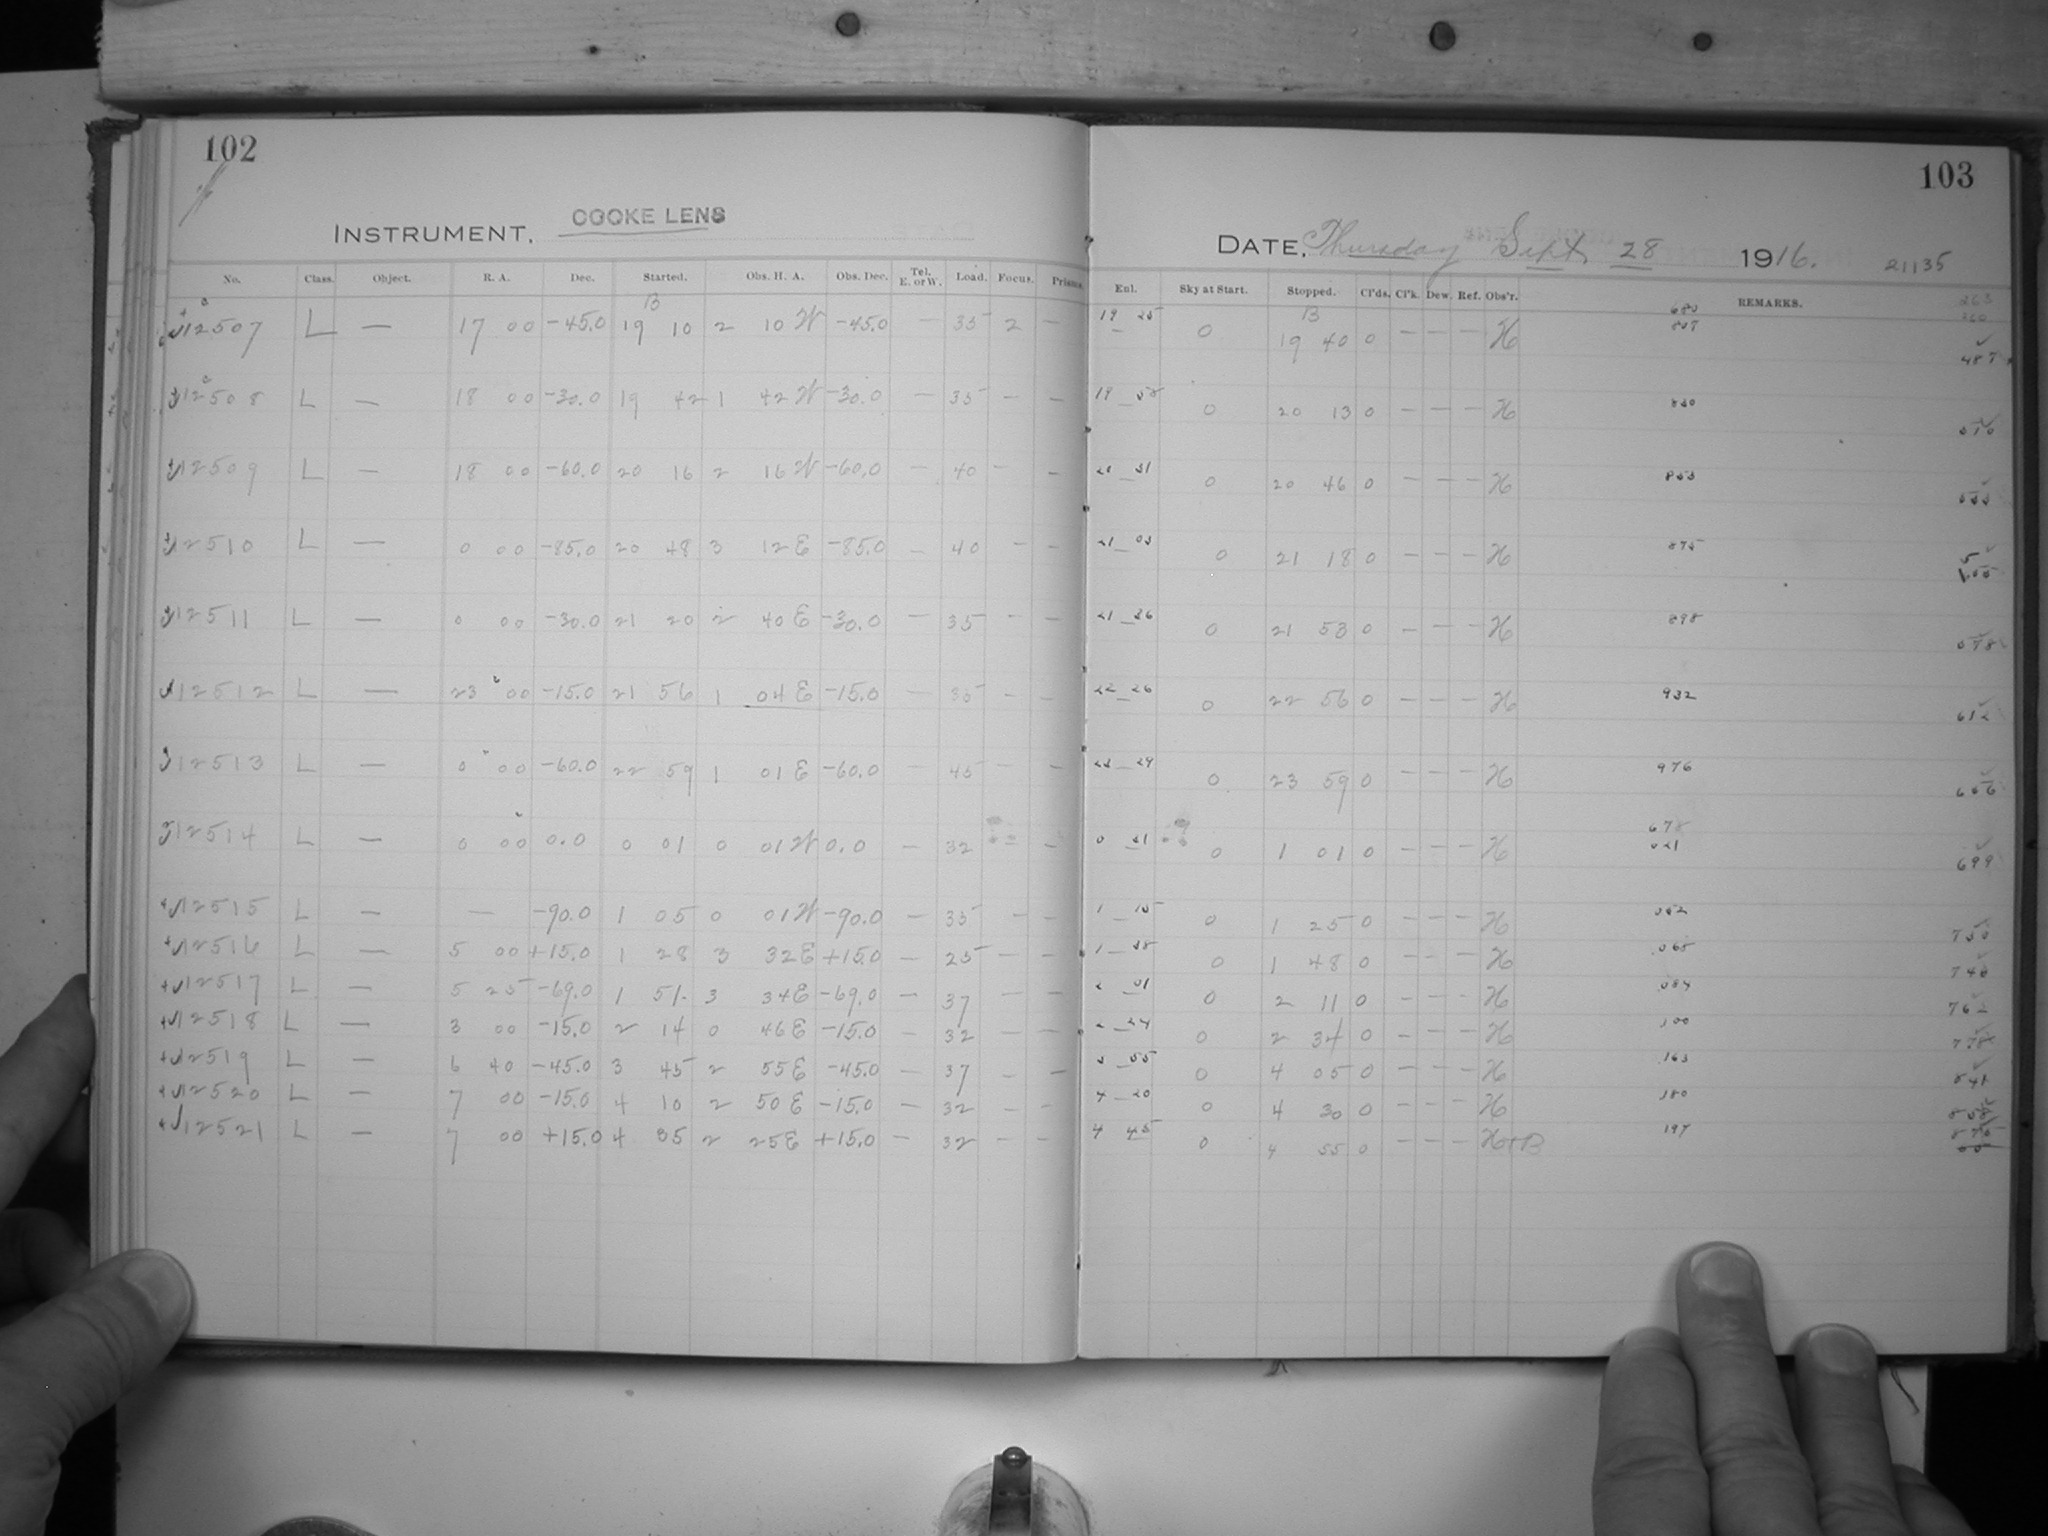 102
103
INSTRUMENT, COOKE LENS
DATE, Thursday Sept 28 1916. 21135
No. Class. Object. R. A. Dec. Started. Obs. H. A. Obs. Dec. Tel. E. or W. Load. Focus. Prisms. Enl. Sky at Start. Stopped. Cl'ds. Cl'k. Dew. Ref. Obs'r. REMARKS.
12507 L — 17 00 -45.0 19 10 2 10 W -45.0 — 35 2 — 19 25 0 19 40 0 — — — H 487
12508 L — 18 00 -30.0 19 42 1 42 W -30.0 — 35 — — 0 20 13 0 — — — H
12509 L — 18 00 -60.0 20 16 2 16 W -60.0 — 40 — — 20 31 0 20 46 0 — — — H 853
12510 L — 0 00 -85.0 20 48 3 12 E -85.0 — 40 — — 21 03 0 21 18 0 — — — H 875
12511 L — 0 00 -30.0 21 20 2 40 E -30.0 — 35 — — 21 36 0 21 53 0 — — — H 898
12512 L — 23 00 -15.0 21 56 1 04 E -15.0 — 35 — — 22 26 0 22 56 0 — — — H 932 612
12513 L — 0 00 -60.0 22 59 1 01 E -60.0 — 45 — — 23 29 0 23 59 0 — — — H 976 656
12514 L — 0 00 0.0 0 01 0 01 W 0.0 — 32 — 0 31 0 1 01 0 — — — H 678 021 699
12515 L — — -90.0 1 05 0 01 W -90.0 — 35 — — 1 15 0 1 25 0 — — — H 052 730
12516 L — 5 00 +15.0 1 28 3 32 E +15.0 — 25 — — 1 38 0 1 48 0 — — — H 068 746
12517 L — 5 25 -69.0 1 51 3 34 E -69.0 — 37 — — 2 01 0 2 11 0 — — — H 084 762
12518 L — 3 00 -15.0 2 14 0 46 E -15.0 — 32 — — 2 24 0 2 34 0 — — — H 100 778
12519 L — 6 40 -45.0 3 45 2 55 E -45.0 — 37 — — 3 55 0 4 05 0 — — — H 163 841
12520 L — 7 00 -15.0 4 10 2 50 E -15.0 — 32 — — 4 20 0 4 30 0 — — — H 180
12521 L — 7 00 +15.0 4 35 2 25 E +15.0 — 32 — — 4 45 0 4 55 0 — — — H+B 197